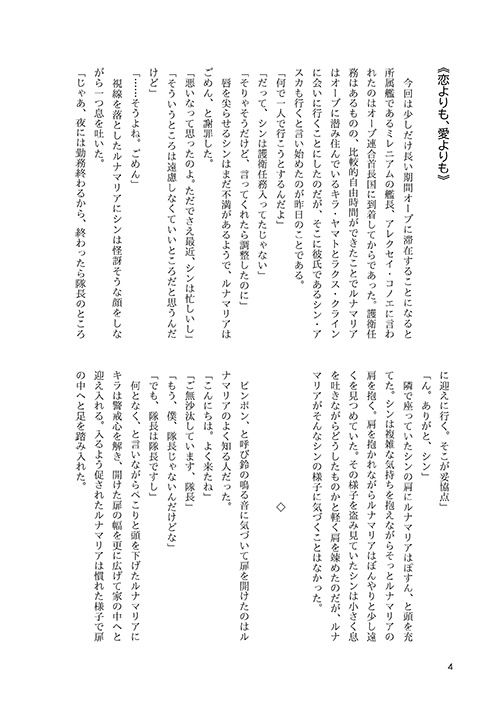 《恋よりも、愛よりも》
　今回は少しだけ長い期間オーブに滞在することになると
所属艦であるミレニアムの艦長、アレクセイ・コノエに言わ
れたのはオーブ連合首長国に到着してからであった。護衛任
務はあるものの、比較的自由時間ができたことでルナマリア
はオーブに潜み住んでいるキラ・ヤマトとラクス・クライン
に会いに行くことにしたのだが、そこに彼氏であるシン・ア
スカも行くと言い始めたのが昨日のことである。
「何で一人で行こうとするんだよ」
「だって、シンは護衛任務入ってたじゃない」
「そりゃそうだけど、言ってくれたら調整したのに」
　唇を尖らせるシンはまだ不満があるようで、ルナマリアは
ごめん、と謝罪した。
「悪いなって思ったのよ。ただでさえ最近、シンは忙しいし」
「そういうところは遠慮しなくていいところだと思うんだ
けど」
「……そうよね。ごめん」
　視線を落としたルナマリアにシンは怪訝そうな顔をしな
がら一つ息を吐いた。
「じゃあ、夜には勤務終わるから、終わったら隊長のところ
に迎えに行く。そこが妥協点」
「ん。ありがと、シン」
　隣で座っていたシンの肩にルナマリアはぽすん、と頭を充
てた。シンは複雑な気持ちを抱えながらそっとルナマリアの
肩を抱く。肩を抱かれながらルナマリアはぼんやりと少し遠
くを見つめていた。その様子を盗み見ていたシンは小さく息
を吐きながらどうしたものかと軽く肩を竦めたのだが、ルナ
マリアがそんなシンの様子に気づくことはなかった。
◇
　ピンポン、と呼び鈴の鳴る音に気づいて扉を開けたのはル
ナマリアのよく知る人だった。
「こんにちは。よく来たね」
「ご無沙汰しています、隊長」
「もう、僕、隊長じゃないんだけどな」
「でも、隊長は隊長ですし」
　何となく、と言いながらぺこりと頭を下げたルナマリアに
キラは警戒心を解き、開けた扉の幅を更に広げて家の中へと
迎え入れる。入るよう促されたルナマリアは慣れた様子で扉
の中へと足を踏み入れた。
4